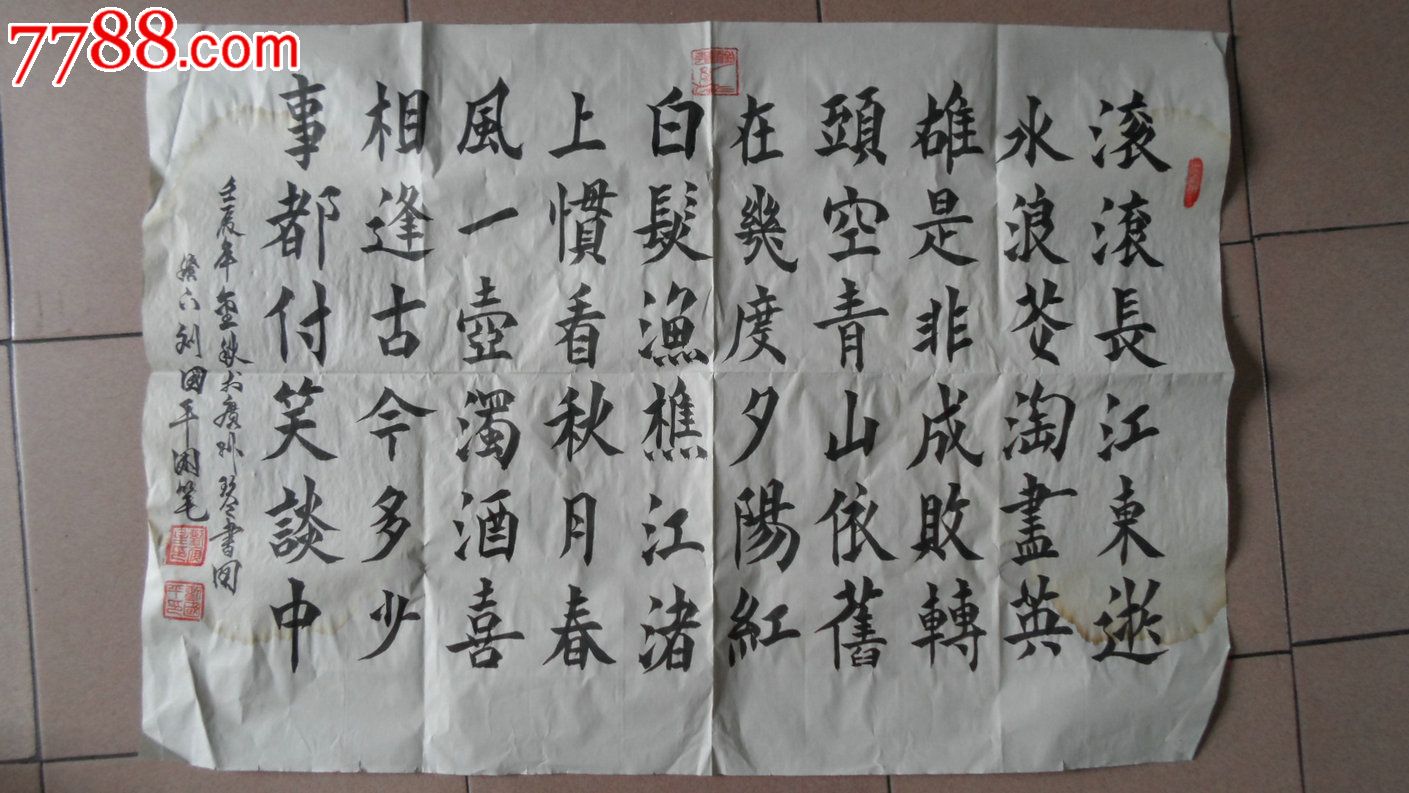 7788.com
滚滾長江東逝
水浪花淘盡英
雄是非成敗轉
頭空青山依舊
在幾度夕陽紅
白髮漁樵江渚
上慣看秋月春
風一壺濁酒喜
相逢古今多少
事都付笑談中
壬辰年 秋 書
國平 笔